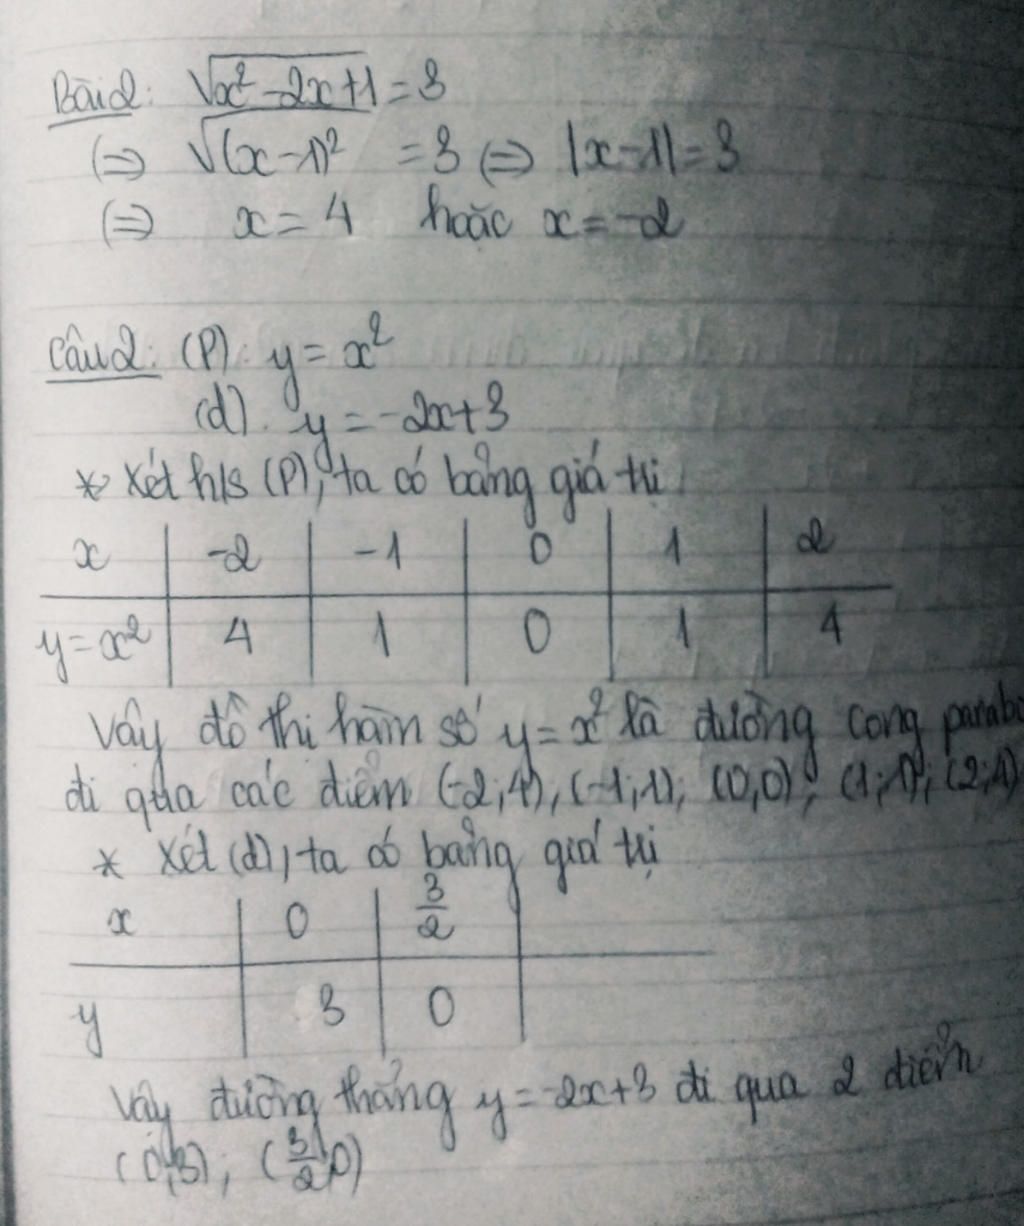 Bài 2: √x² - 2x + 1 = 3
(=) √(x - 1)² = 3 (=) |x - 1| = 3
(=) x = 4 hoặc x = -2
Câu 2: (P): y = x²
(d). y = -2x + 3
* Xét h/s (P), ta có bảng giá trị
x | -2 | -1 | 0 | 1 | 2
y = x² | 4 | 1 | 0 | 1 | 4
Vậy đồ thị hàm số y = x² là đường cong parabo
đi qua các điểm (-2; 4), (-1; 1); (0; 0); (1; 1); (2; 4)
* Xét (d), ta có bảng giá trị
x | 0 | 3/2
y | 3 | 0
Vậy đường thẳng y = -2x + 3 đi qua 2 điểm
(0; 3); (3/2; 0)